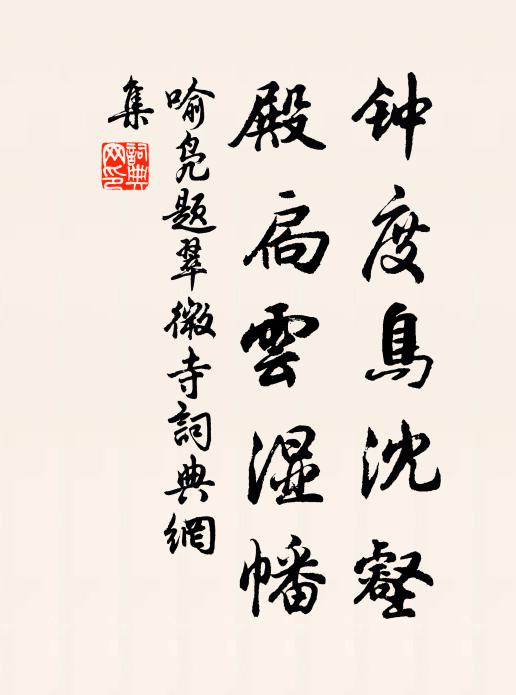 钟度鳥沈壑
殿扃雲湿幡
喻凫题翠微寺詞典網
集
詞典網印